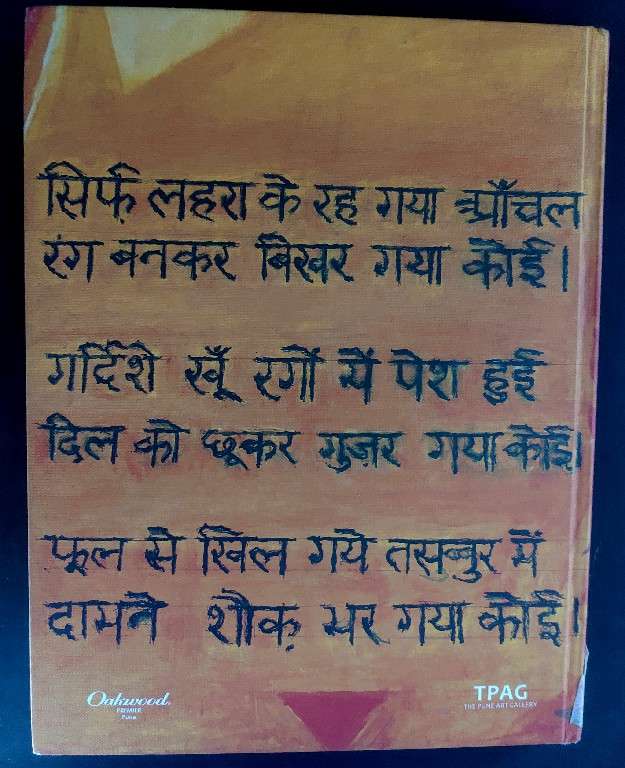 सिर्फ़ लहरा के रह गया आँचल
रंग बनकर बिखर गया कोई।
गर्दिशे खूँ रगों में पेश हुई
दिल को छूकर गुज़र गया कोई।
फूल से खिल गये तसव्वुर में
दामने शौक़ भर गया कोई।
Oakwood
PREMIER
Pune
TPAG
THE PUNE ART GALLERY